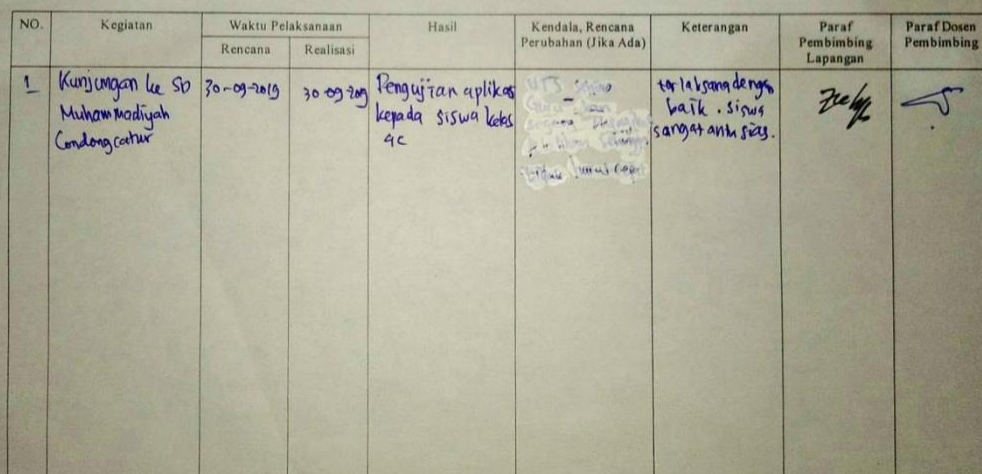 NO.
Kegiatan
Waktu Pelaksanaan
Rencana
Realisasi
Hasil
Kendala, Rencana
Perubahan (Jika Ada)
Keterangan
Paraf
Pembimbing
Lapangan
Paraf Dosen
Pembimbing
1
Kunjungan ke SD
Muhammadiyah
Condongcatur
30-09-2019
30-09-209
Pengujian aplikasi
kepada siswa kelas
4c
-
terlaksana dengan
baik. siswa
sangat antusias.